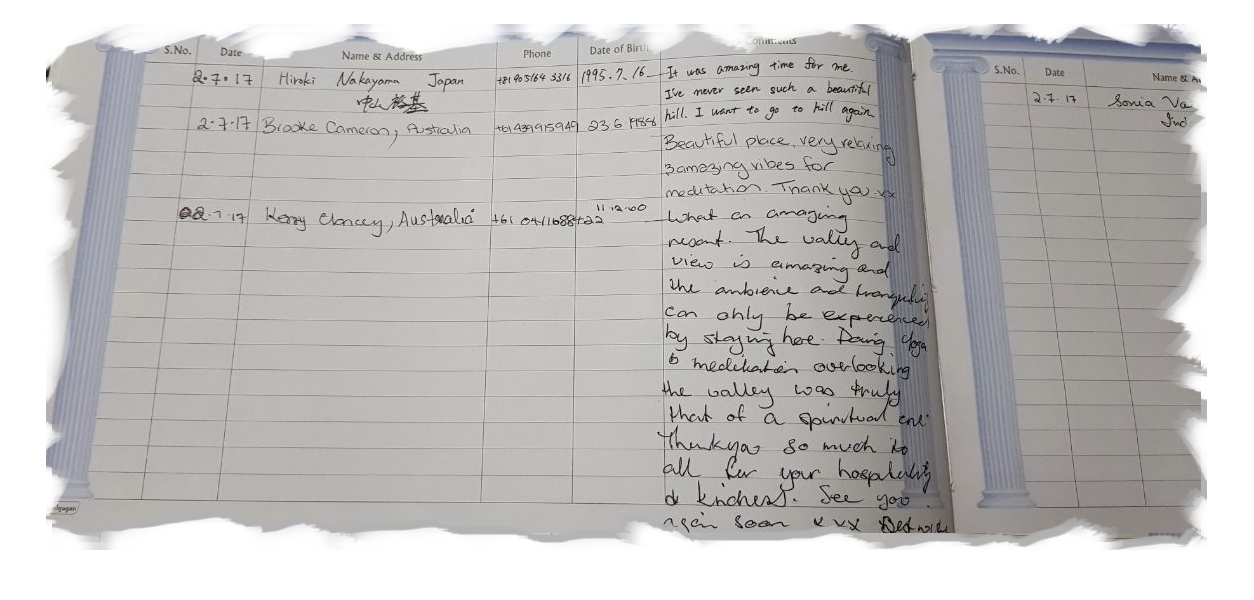 S.No. Date Name & Address Phone Date of Birth Comments
2.7.17 Hiroki Nakayama Japan +81 905164 3316 1995.7.16 It was amazing time for me.
中山裕基 I've never seen such a beautiful
hill. I want to go to hill again
2.7.17 Brooke Cameron, Australia +61439915949 23.6.1986
Beautiful place, very relaxing
& amazing vibes for
meditation. Thank you xx
2.7.17 Kerry Clancey, Australia 11.2.60
What an amazing
resort. The valley and
view is amazing and
the ambience and tranquility
can only be experienced
by staying here. Doing yoga
& meditation overlooking
the valley was truly
that of a spiritual one.
Thankyou so much to
all for your hospitality
& kindness. See you
again soon xxx Best wish
S.No. Date Name &
2.7.17 Sonia Va
Ind